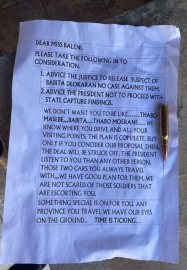 DEAR MISS BALENI.
PLEASE TAKE THE FOLLOWING IN TO
CONSIDERATION.
1. ADVICE THE JUSTICE TO RELEASE SUSPECT OF
BABITA DEOKARAN NO CASE AGAINST THEM.
2. ADVICE THE PRESIDENT NOT TO PROCEED WITH
STATE CAPTURE FINDINGS.
WE DON'T WANT YOU TO BE LIKE........THABO
MASEBE,,,BABITA.....THABO MOERANE..... WE
KNOW WHERE YOU DRIVE AND ALL YOUR
VISITING POINTS. THE PLAN IS COMPLETE. BUT
ONLY IF YOU CONSIDER OUR PROPOSAL THEN
THE DEAL WILL BE STRUCK OFF. THE PRESIDENT
LISTEN TO YOU THAN ANY OTHER PERSON.
THOSE TWO CARS YOU ALWAYS TRAVEL
WITH,,,WE HAVE GOOD PLAN FOR THEM. WE
ARE NOT SCARED OF THOSE SOLDIERS THAT
ARE ESCORTING YOU.
SOMETHING SPECIAL IS ON FOR YOU. ANY
PROVINCE YOU TRAVEL WE HAVE OUR EYES
ON THE GROUND.. TIME IS TICKING....